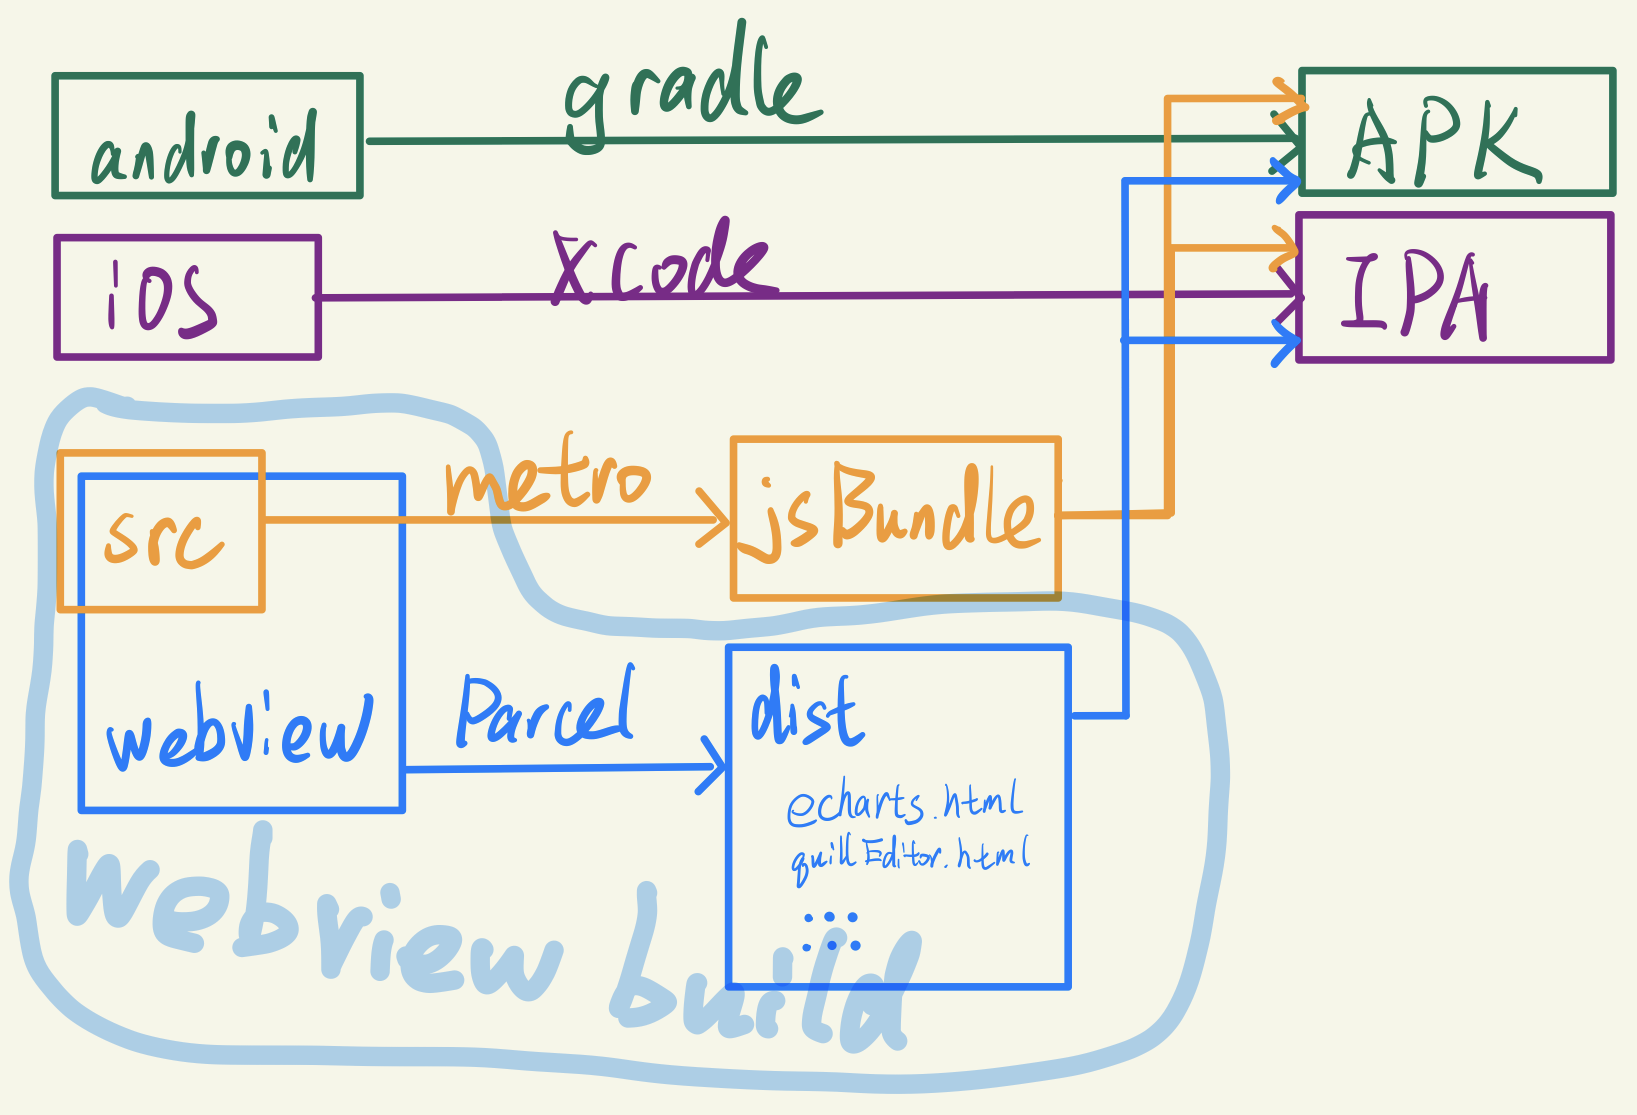 android
gradle
APK
ios
Xcode
IPA
src
metro
jsBundle
webview
Parcel
dist
echarts.html
quillEditor.html
webview build